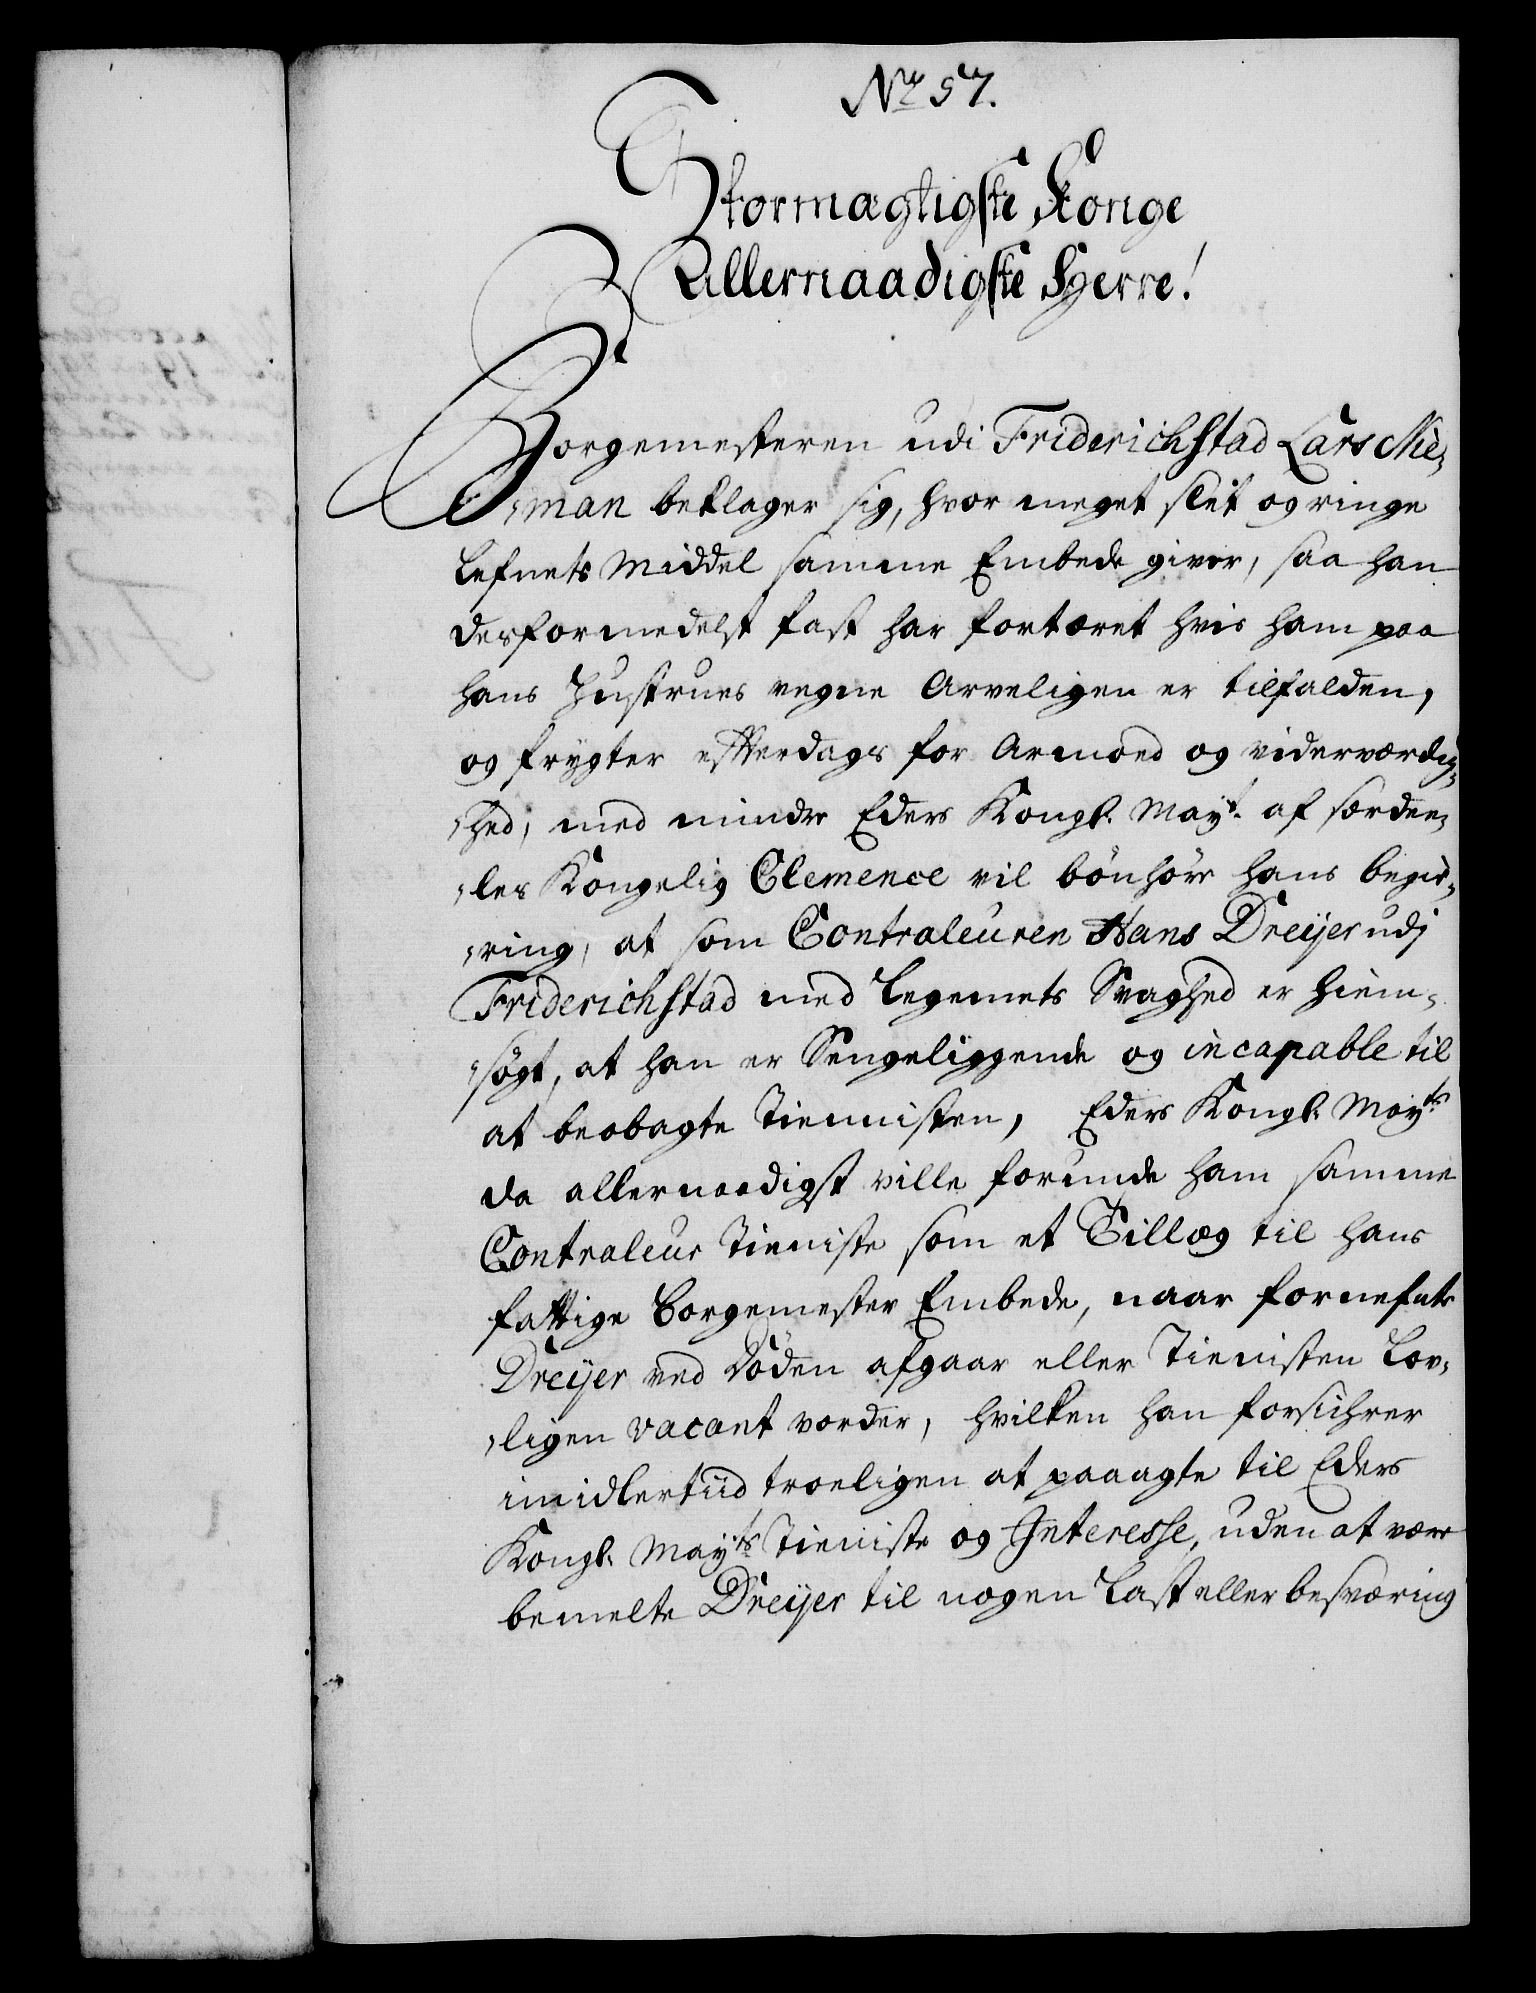 No 57.
Stormægtigste Konge
Allernaadigste Herre!
Borgemesteren udi Friderichstad Lars Nie-
man beklager sig, hvor meget slet og ringe
Lefnets Middel samme Embede giver, saa han
derformedelst fast har fortæret hvis ham paa
hans Hustrues vegne Arveligen er tilfalden,
og frygter effterdags for Armoed og viderværdig-
hed, med mindre Eders Kongl. Mayt. af særdee-
les Kongelig Clemence vil bönhöre hans begie-
ring, at som Contraleuren Hans Dreÿer udj
Friderichstad med Legemets Svaghed er hiem-
sögt, at han er Sengeliggende og incapable til
at beobagte Tiennisten, Eders Kongl. Mayts
da allernaadigst ville forunde ham samme
Contraleur Tieniste som et Tillæg til hans
fattige Borgemester Embede, naar fornefnte
Dreÿer ved Döden afgaar eller Tienisten Lov-
ligen vacant vorder, hvilken han forsichrer
imidlertiid troeligen at paaagte til Eders
Kongl. Mayts Tieniste og Interesse, uden at være
bemelte Dreÿer til nogen Last eller besværing